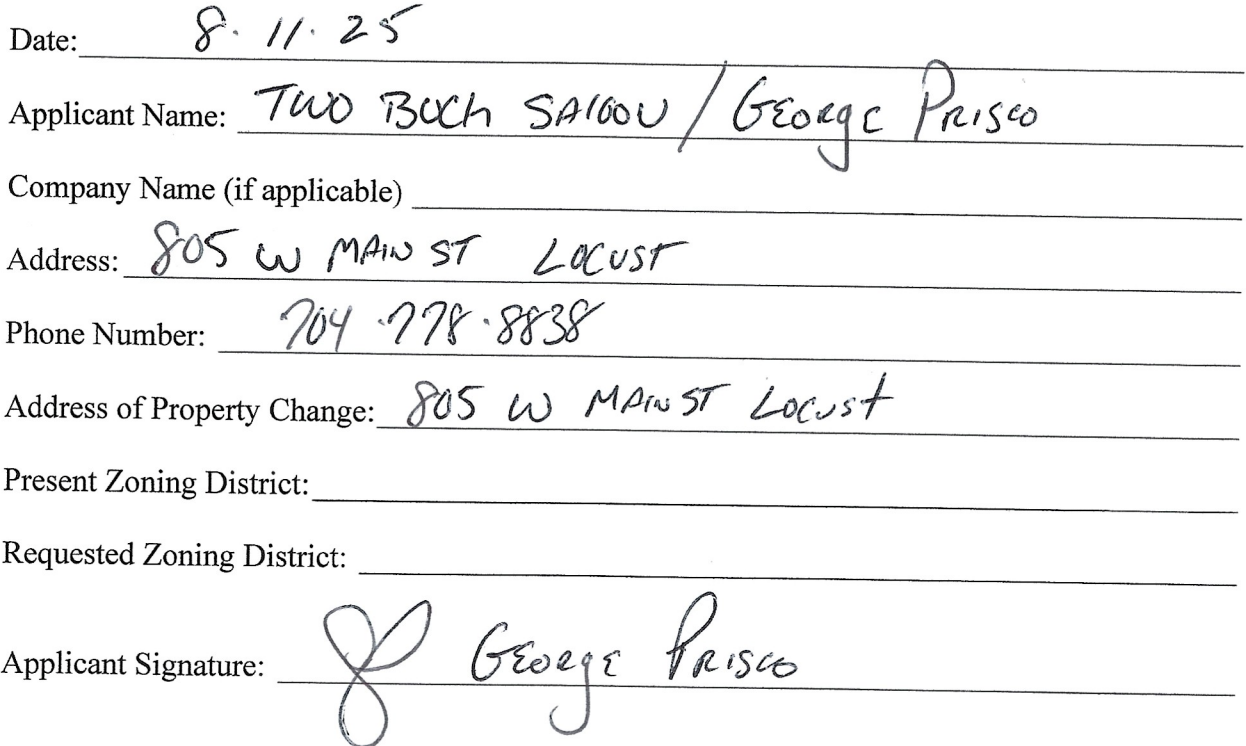 Date: 8.11.25
Applicant Name: TWO BUCK SAlOON / GEORGE PRISCO
Company Name (if applicable)
Address: 805 W MAIN ST LOCUST
Phone Number: 704.778.8838
Address of Property Change: 805 W MAIN ST LOCUST
Present Zoning District:
Requested Zoning District:
Applicant Signature: GP GEORGE PRISCO